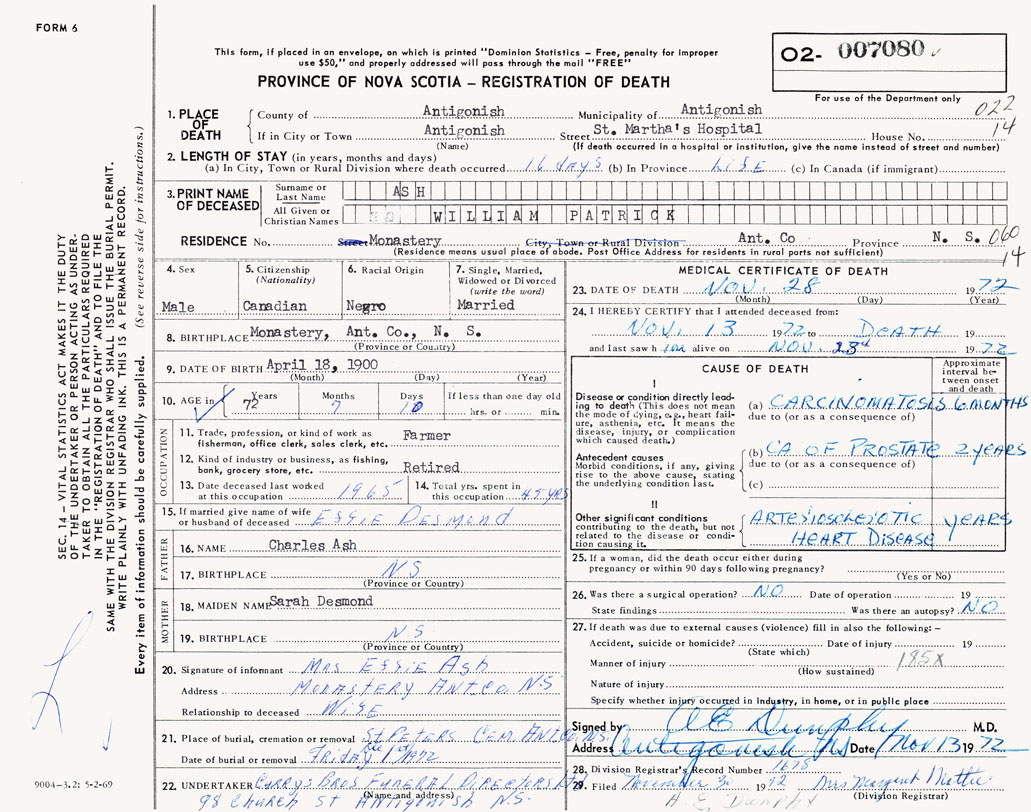 FORM 6
This form, if placed in an envelope, on which is printed "Dominion Statistics – Free, penalty for improper
use $50," and properly addressed will pass through the mail "FREE"
PROVINCE OF NOVA SCOTIA – REGISTRATION OF DEATH
02- 007080
For use of the Department only
022
14
1. PLACE OF DEATH
County of Antigonish Municipality of Antigonish
If in City or Town Antigonish Street St. Martha's Hospital House No.
(Name) (If death occurred in a hospital or institution, give the name instead of street and number)
2. LENGTH OF STAY (in years, months and days)
(a) In City, Town or Rural Division where death occurred 16 days (b) In Province Life (c) In Canada (if immigrant)
3. PRINT NAME OF DECEASED
Surname or Last Name ASH
All Given or Christian Names WILLIAM PATRICK
RESIDENCE No. Street Monastery City, Town or Rural Division Ant. Co Province N. S. 060
(Residence means usual place of abode. Post Office Address for residents in rural parts not sufficient) 14
4. Sex
Male
5. Citizenship
(Nationality)
Canadian
6. Racial Origin
Negro
7. Single, Married,
Widowed or Divorced
(write the word)
Married
8. BIRTHPLACE Monastery, Ant. Co., N. S.
(Province or Country)
9. DATE OF BIRTH April 18, 1900
(Month) (Day) (Year)
10. AGE in Years Months Days If less than one day old
72 7 10 hrs. or min.
OCCUPATION
11. Trade, profession, or kind of work as
fisherman, office clerk, sales clerk, etc. Farmer
12. Kind of industry or business, as fishing,
bank, grocery store, etc. Retired
13. Date deceased last worked
at this occupation 1965
14. Total yrs. spent in
this occupation 45 yrs
15. If married give name of wife
or husband of deceased Essie Desmond
FATHER
16. NAME Charles Ash
17. BIRTHPLACE N.S
(Province or Country)
MOTHER
18. MAIDEN NAME Sarah Desmond
19. BIRTHPLACE N.S
(Province or Country)
20. Signature of informant Mrs Essie Ash
Address Monastery Ant.Co. N.S
Relationship to deceased Wife
21. Place of burial, cremation or removal St Peters Cem. Ant.Co. N.S.
Date of burial or removal Friday 1972
22. UNDERTAKER Curry's Bros Funeral Directors
(Name and address)
98 Church St Antigonish N.S.
MEDICAL CERTIFICATE OF DEATH
23. DATE OF DEATH Nov. 28 1972
(Month) (Day) (Year)
24. I HEREBY CERTIFY that I attended deceased from:
Nov. 13 1972 to Death 19
and last saw him alive on Nov. 1972
CAUSE OF DEATH
Approximate
interval be-
tween onset
and death
I
Disease or condition directly lead-
ing to death (This does not mean
the mode of dying, e.g., heart fail-
ure, asthenia, etc. It means the
disease, injury, or complication
which caused death.)
(a) CARCINOMATOSIS 6 MONTHS
due to (or as a consequence of)
Antecedent causes
Morbid conditions, if any, giving
rise to the above cause, stating
the underlying condition last.
(b) CA OF PROSTATE 2 YEARS
due to (or as a consequence of)
(c)
II
Other significant conditions
contributing to the death, but not
related to the disease or condi-
tion causing it.
ARTERIOSCLEROTIC YEARS
HEART DISEASE
25. If a woman, did the death occur either during
pregnancy or within 90 days following pregnancy?
(Yes or No)
26. Was there a surgical operation? NO Date of operation 19
State findings Was there an autopsy? NO
27. If death was due to external causes (violence) fill in also the following: –
Accident, suicide or homicide? Date of injury 19
(State which)
Manner of injury 185X
(How sustained)
Nature of injury
Specify whether injury occurred in industry, in home, or in public place
Signed by A E Dunphy M.D.
Address Antigonish NS Date Nov 13 1972
28. Division Registrar's Record Number 1678
29. Filed 1972 Mrs Margaret
A. E. Dunphy (Division Registrar)
SEC. 14 – VITAL STATISTICS ACT MAKES IT THE DUTY
OF THE UNDERTAKER OR PERSON ACTING AS UNDER-
TAKER TO OBTAIN ALL THE PARTICULARS REQUIRED
IN THE "REGISTRATION OF DEATH" AND TO FILE THE
SAME WITH THE DIVISION REGISTRAR WHO SHALL ISSUE THE BURIAL PERMIT.
WRITE PLAINLY WITH UNFADING INK. THIS IS A PERMANENT RECORD.
Every item of information should be carefully supplied. (See reverse side for instructions.)
9004-3.2: 5-2-69